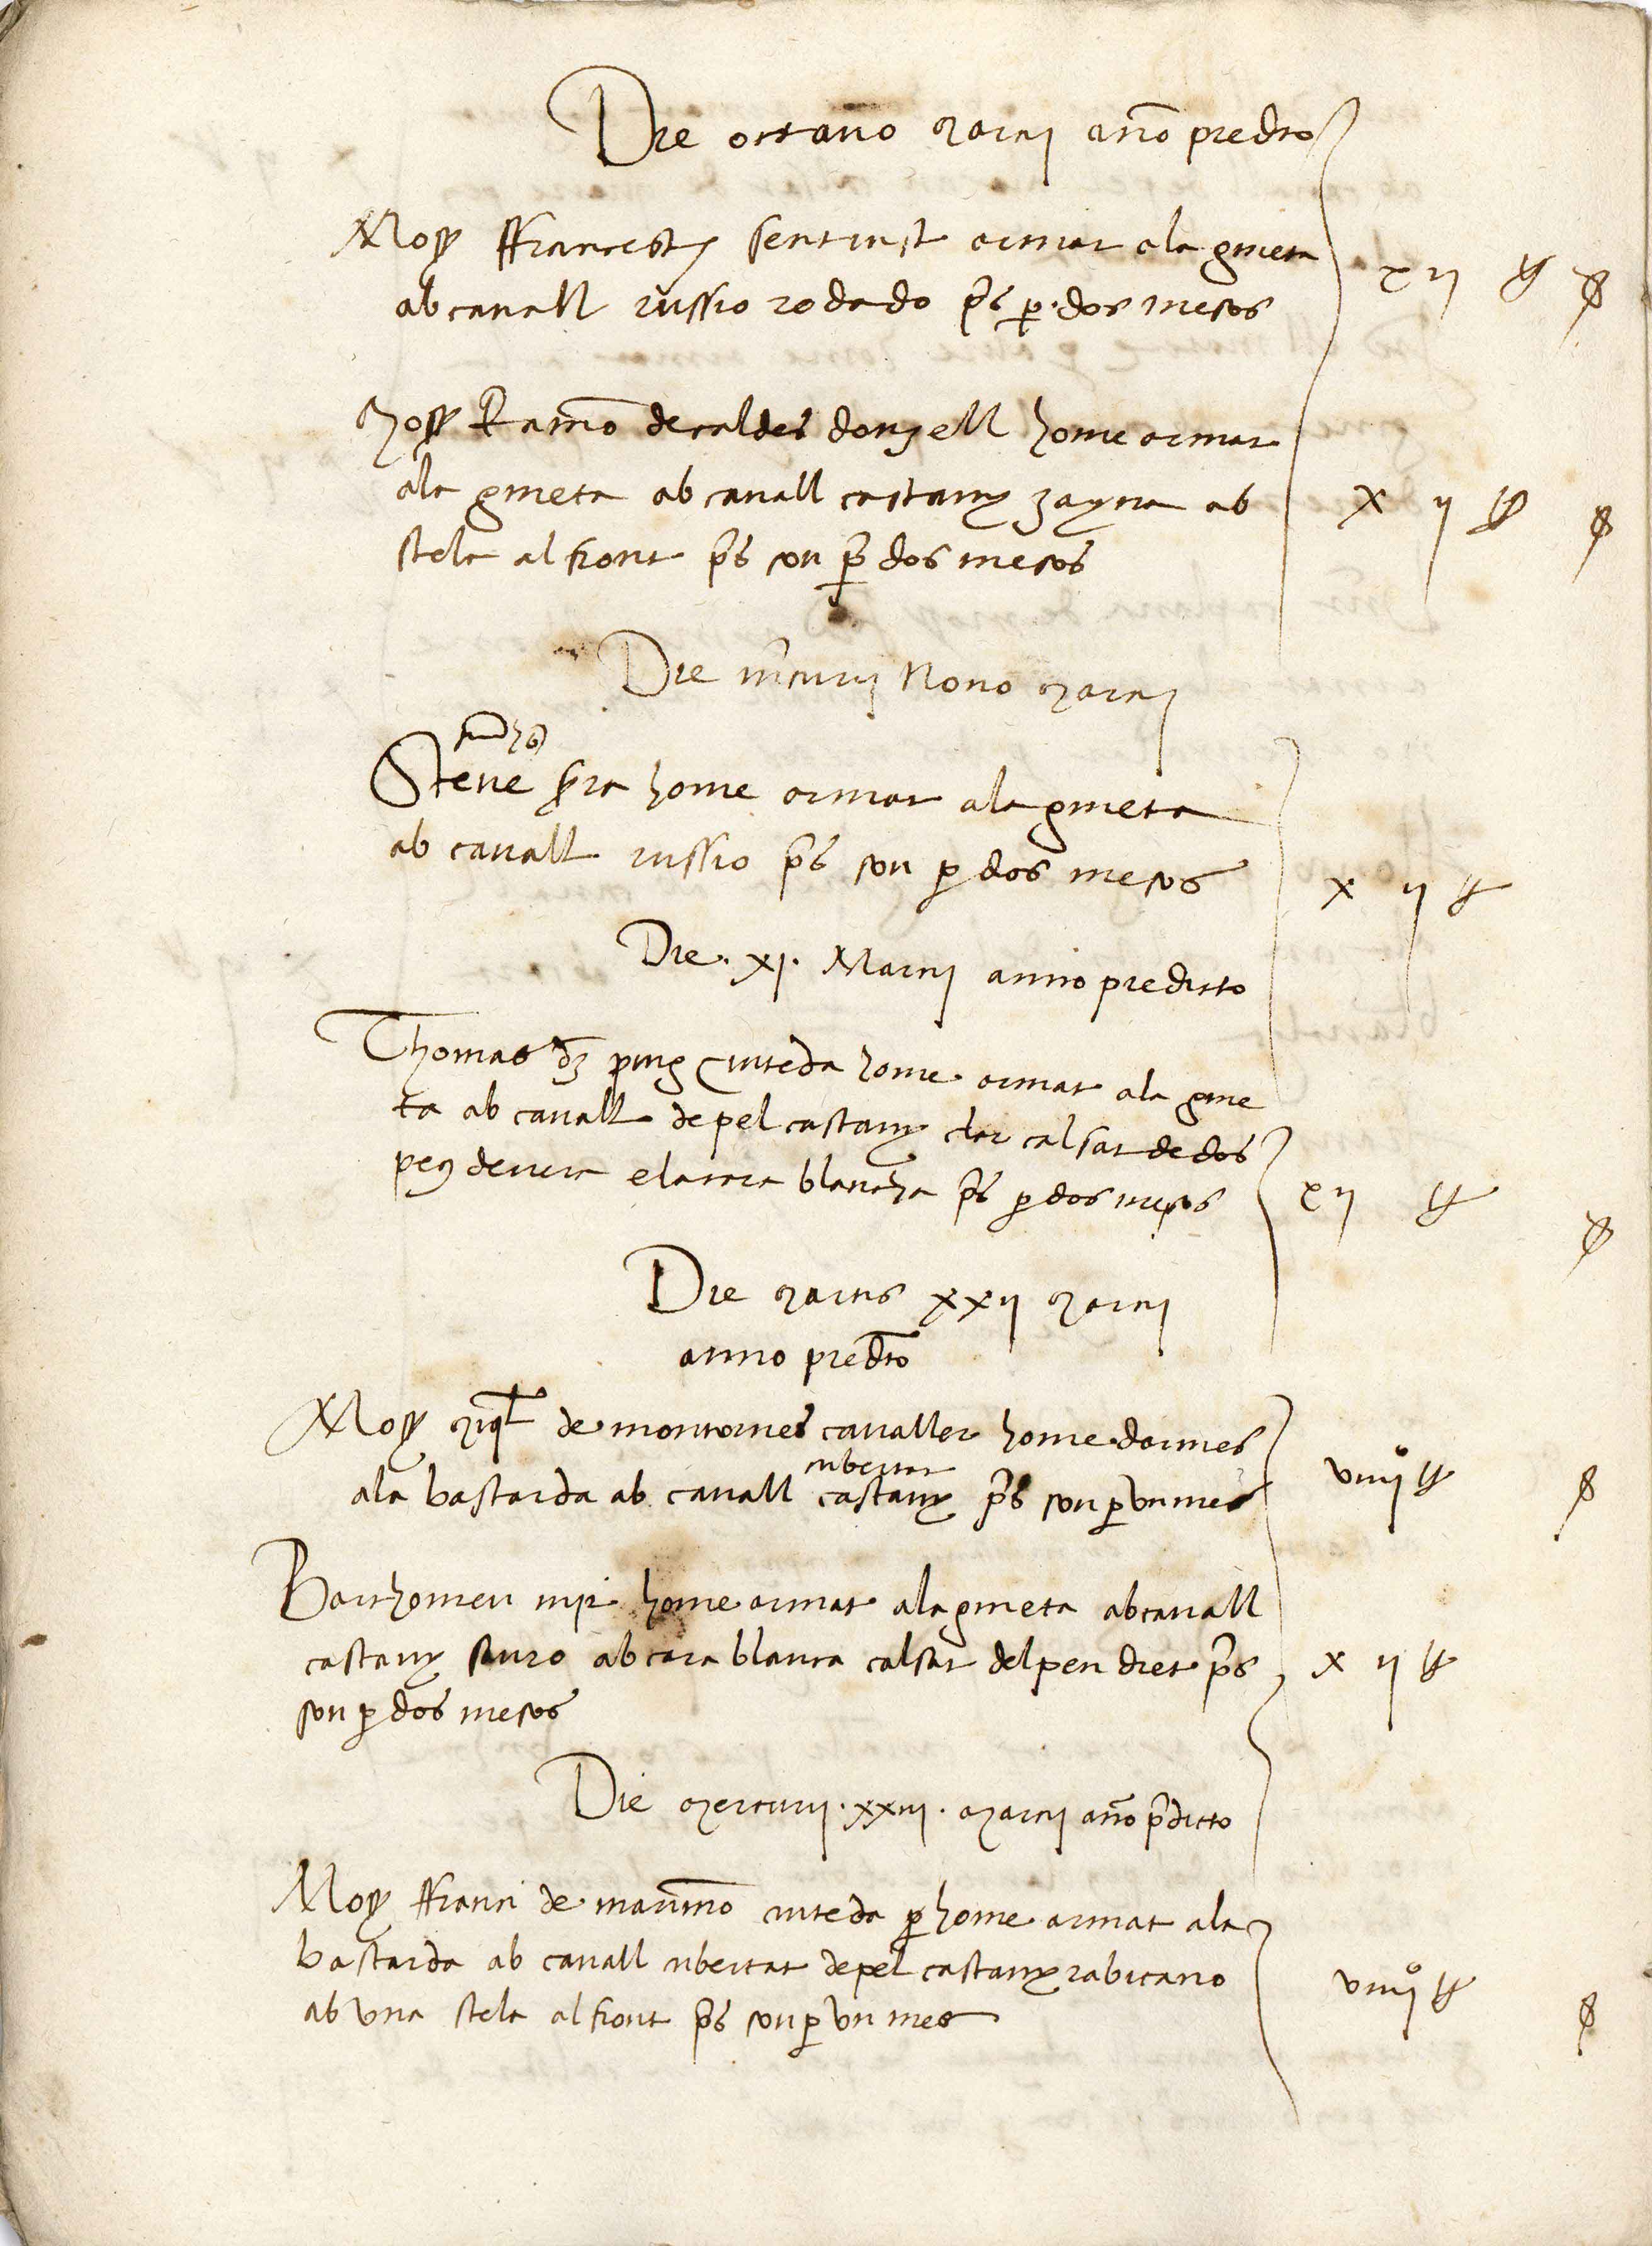 Die octauo marcij año predto
Moss ffrancesch sentiust armat ala gineta
ab cauall russio rodado ps per dos mesos xij ll
Moss Ramō de caldes donzell home armat
ala gineta ab cauall castany zayna ab
stela al front ps sou per dos mesos x ij ll
Die mcurij Nono marcij
Steue home armat ala gineta
ab cauall russio ps sou per dos mesos x ij ll
Die . xj . Marcij anno predicto
Thomas puig ciuteda home armat ala gine
ta ab cauall de pel castany clar calsat de dos
peus derrera e la cara blancha ps per dos mesos xij ll
Die martis xxij marcij
anno predto
Moss miql de montornes caualler home darmes
cubertat
ala bastarda ab cauall castany ps sou per vn mes viiijº ll
Barthomeu mir home armat ala gineta ab cauall
castany sauro ab cara blanca calsat del peu dret ps
sou per dos mesos x ij ll
Die mercurij . xxiij . marcij año pdicto
Moss ffranci de marimō ciuteda per home armat ala
bastarda ab cauall cubertat de pel castany rabicano
ab vna stela al front ps sou per vn mes viiijº ll